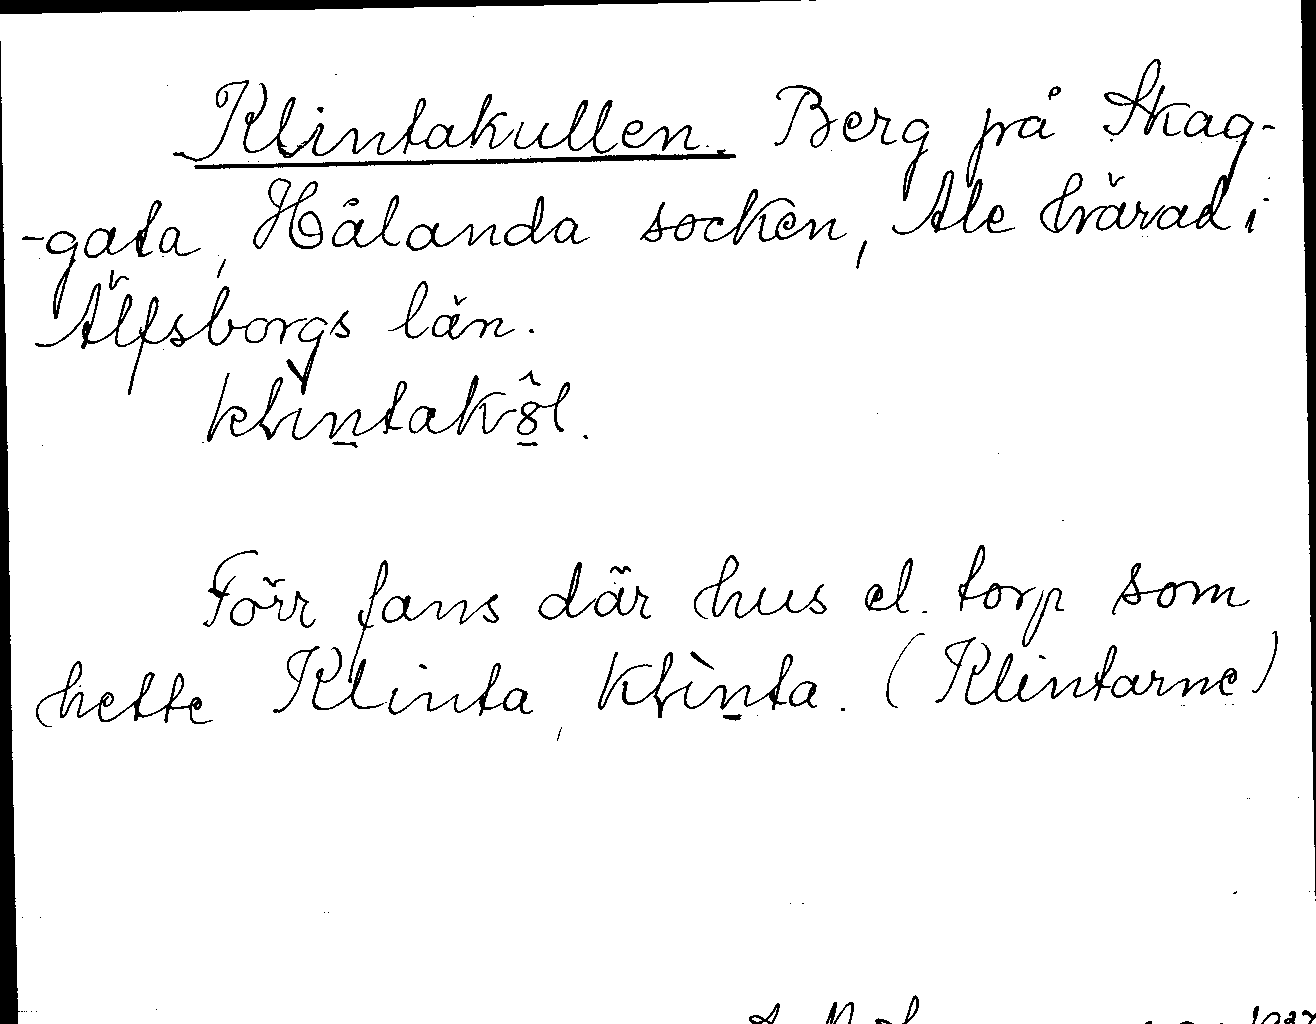 Klintakullen. Berg på Skag-
-gata, Hålanda socken, Ale härad i
Älfsborgs län.
klintakŏ̭l.
Förr fans där hus el. torp som
hette Klinta, klìnta. (Klintarne)